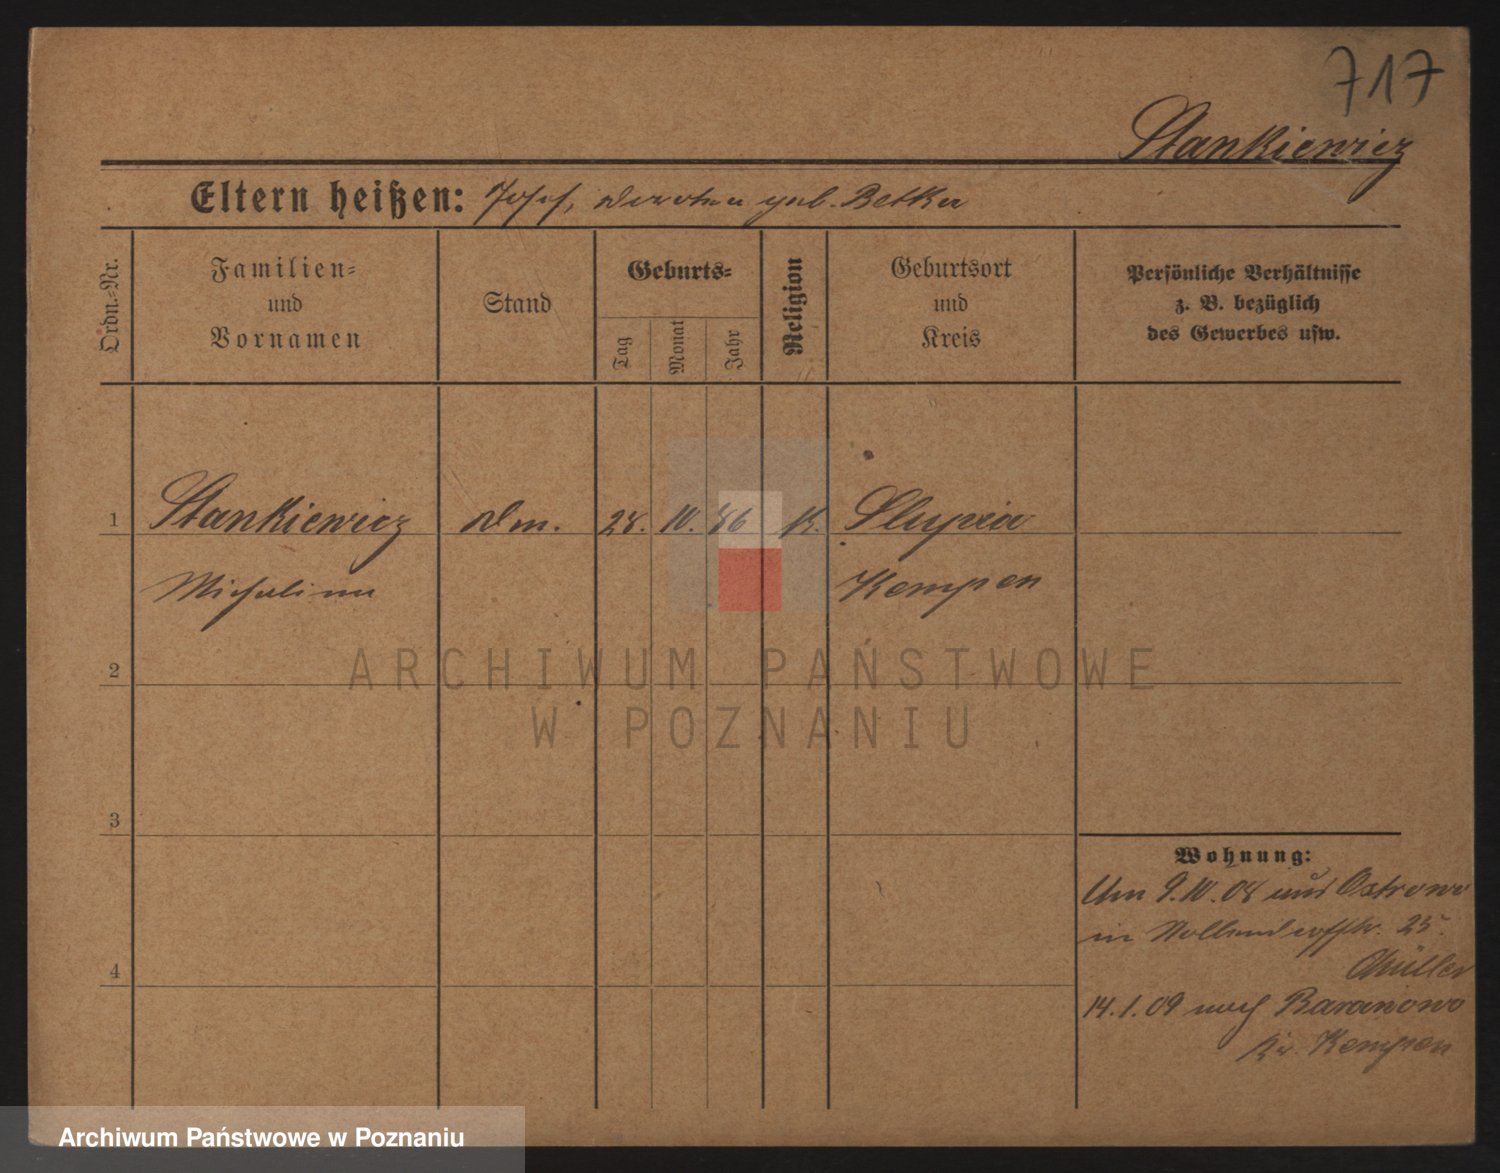 717
Stankiewicz
Eltern heißen: Josef, Dorothea geb. Betka
Ordn.-Nr.
Familien-
und
Vornamen
Stand
Geburts-
Tag
Monat
Jahr
Religion
Geburtsort
und
Kreis
Persönliche Verhältnisse
z. B. bezüglich
des Gewerbes usw.
1 Stankiewicz Dm. 28. 10. 86 K. Slupia
Michalina Kempen
2
3
4
Wohnung:
Um 9.10.08 aus Ostrowo
in Nollendorfstr. 25.
Müller
14.1.09 nach Baranowo
Kr. Kempen
ARCHIWUM PAŃSTWOWE
W POZNANIU
Archiwum Państwowe w Poznaniu